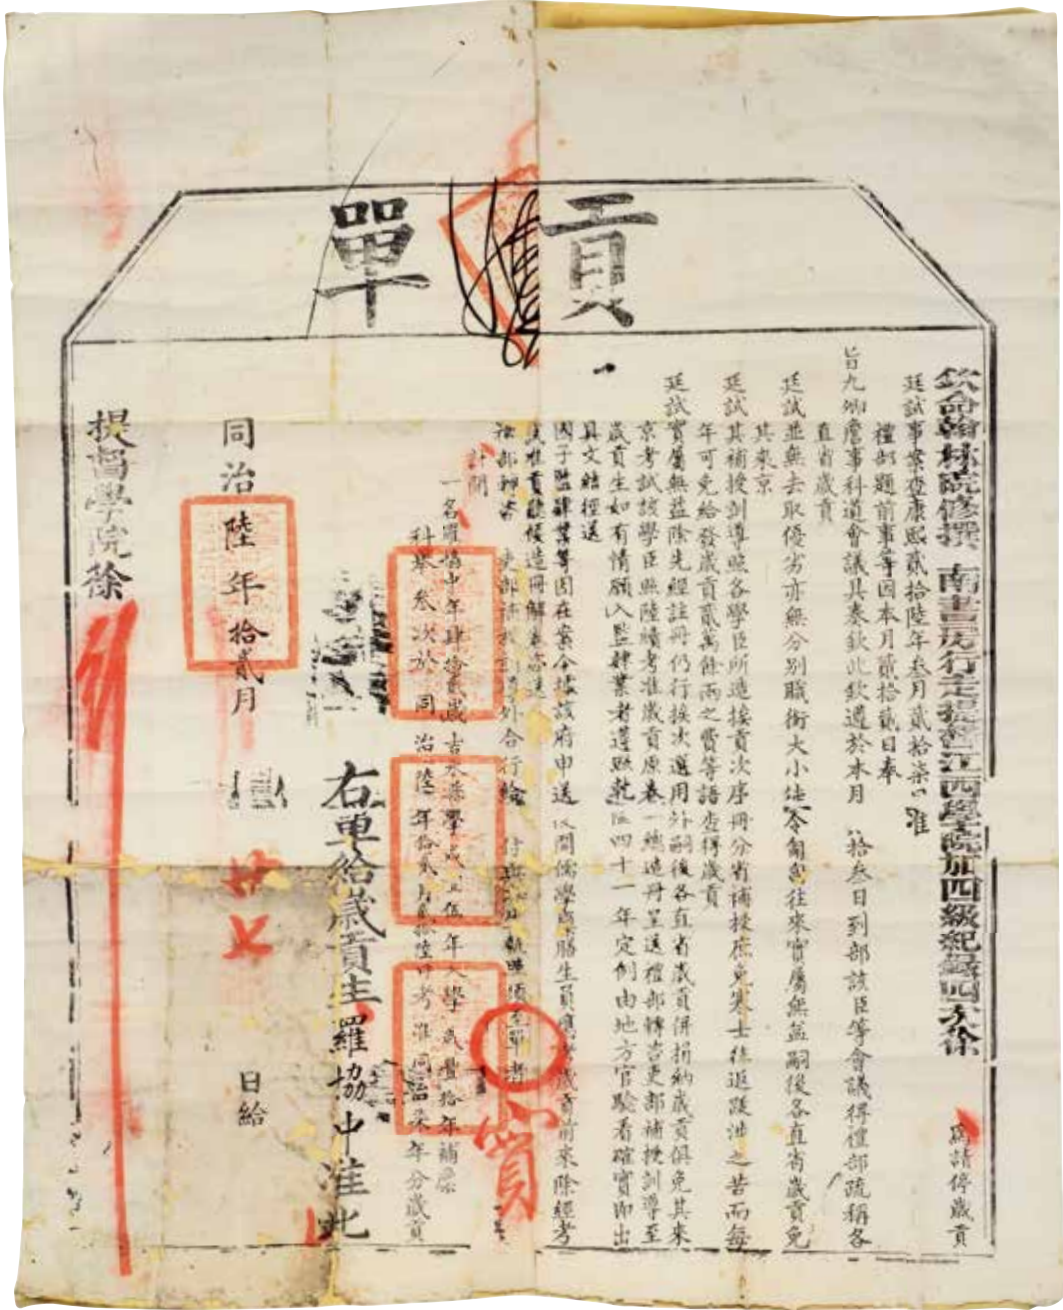 貢單
欽命翰林院修撰 南書房行走提督江西學院加四級紀錄四次徐 爲請停歲貢
廷試事案查康熙貳拾陸年叁月貳拾柒日准
禮部題前事等因本月貳拾貳日奉
旨九卿詹事科道會議具奏欽此欽遵於本月 拾叁日到部該臣等會議得禮部疏稱各
直省歲貢
廷試並無去取優劣亦無分別職銜大小徒令匍匐往來實屬無益嗣後各直省歲貢免
其來京
廷試其補授訓導照各學臣所造挨貢次序冊分省補授庶免寒士往返跋涉之苦而每
年可免給發歲貢貳萬餘兩之費等語查得歲貢
廷試實屬無益除先經註冊仍行挨次選用外嗣後各直省歲貢併捐納歲貢俱免其來
京考試該學臣照陸續考准歲貢原卷一總造冊呈送禮部轉咨吏部補授訓導至
歲貢生如有情願入監肄業者遵照乾隆四十一年定例由地方官驗看確實即出
具文結徑送
國子監肄業等因在案今據該府申送 儒學廩膳生員應考歲貢前來除經考
准貢 造冊解
禮部 吏部 外合行給 付與 執照須至單者
計開
一名羅協中年肆拾貳歲吉水縣學咸豐伍年入學咸豐拾年補廩
科舉叁次於同治陸年拾貳月貳拾陸日考准同治柒年分歲貢
右單給歲貢生羅協中准此
同治陸年拾貳月 廿七 日給
提督學院徐
實